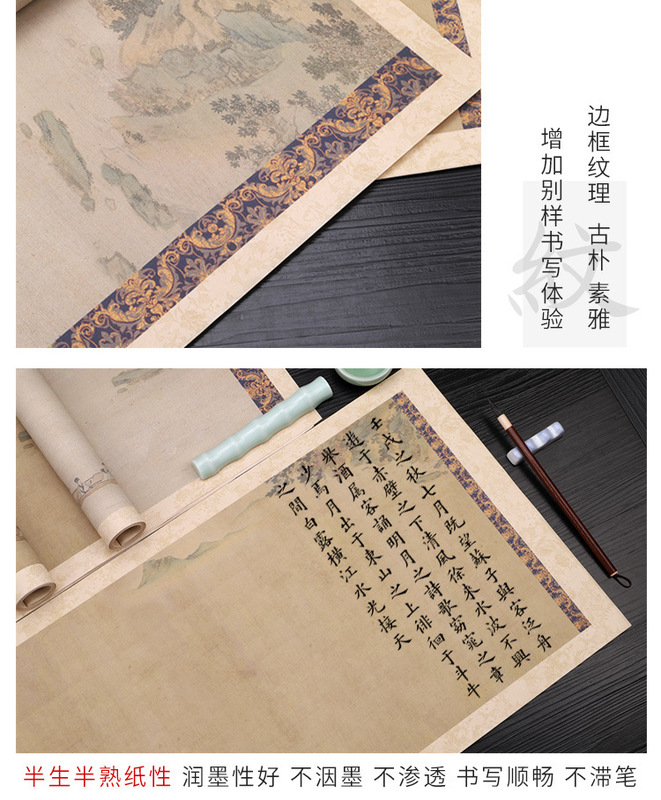 边框纹理 古朴 素雅
增加别样书写体验
紋
壬戌之秋七月既望蘇子與客泛舟
遊于赤壁之下清風徐来水波不興
舉酒属客誦明月之詩歌窈窕之章
少焉月出于東山之上徘徊于斗牛
之間白露横江水光接天
半生半熟纸性 润墨性好 不洇墨 不渗透 书写顺畅 不滞笔